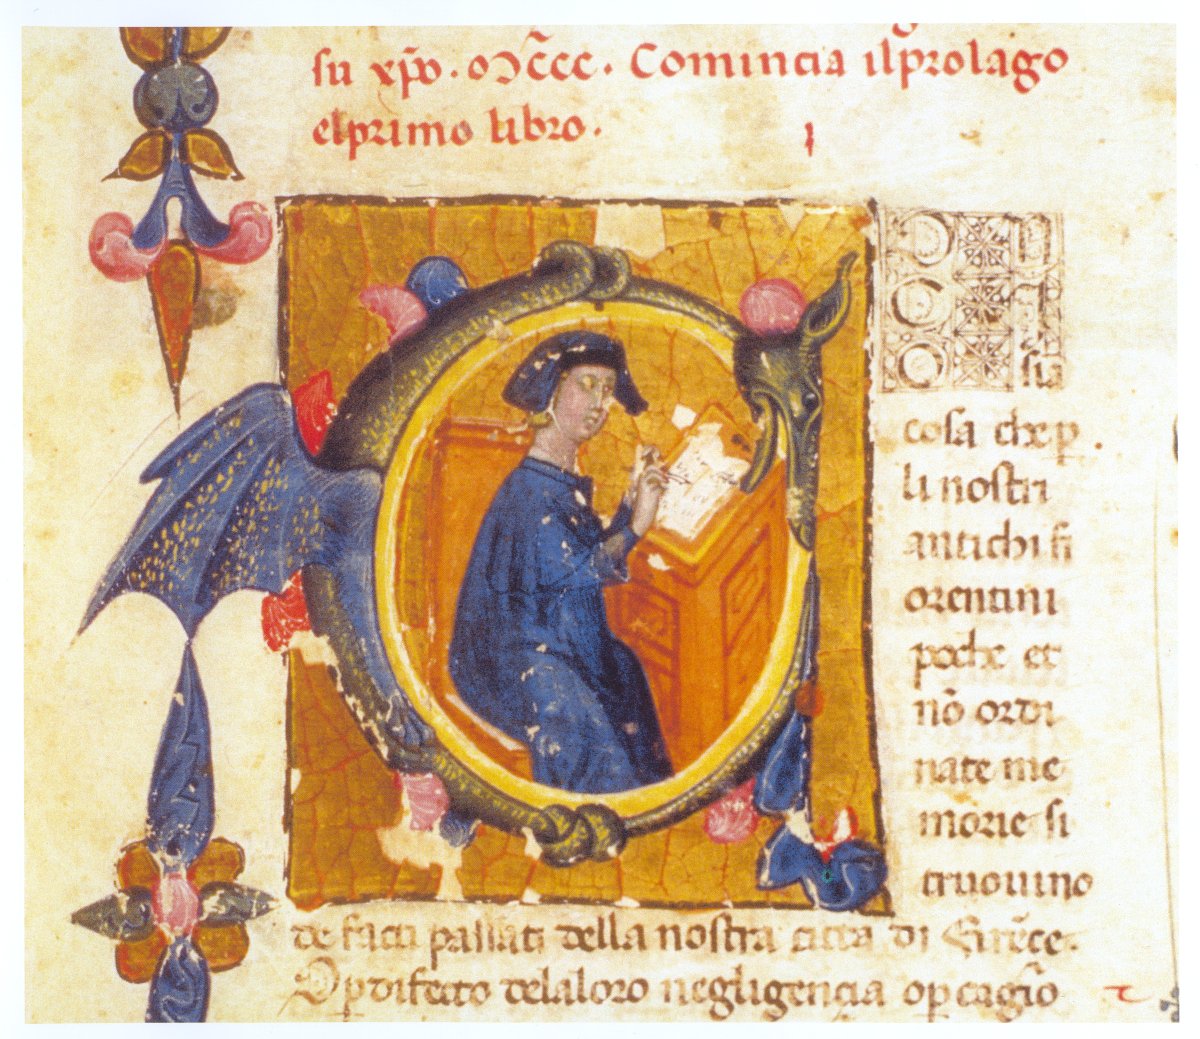 su xp̄o. MCCC. Comincia il prolago
el primo libro.
sia
cosa che p
li nostri
antichi fi
orentini
poche et
nō ordi
nate me
morie si
truovino
de facti passati della nostra citta di Firēçe.
O p difecto dela loro negligencia o p cagiō